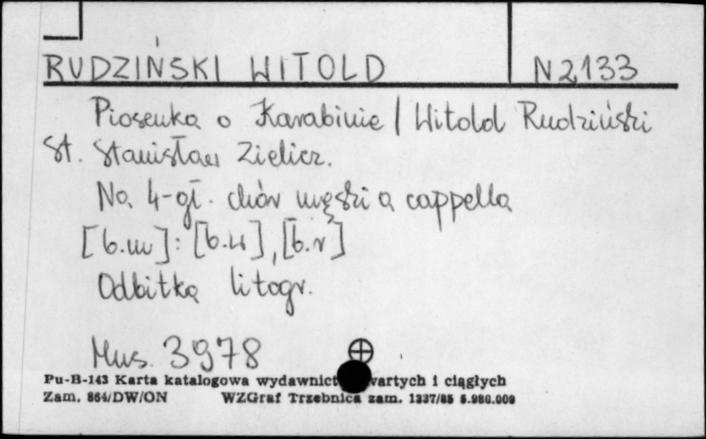 RUDZIŃSKI WITOLD N 2133
Piosenka o Karabinie / Witold Rudziński
sł. Stanisław Zielicz.
Na 4-gł. chór męski a cappella
[b.m] : [b.w], [b.r]
Odbitka litogr.
Mus. 3978
Pu-B-143 Karta katalogowa wydawnict wartych i ciągłych
Zam. 864/DW/ON WZGraf Trzebnica zam. 1337/85 5.980.000